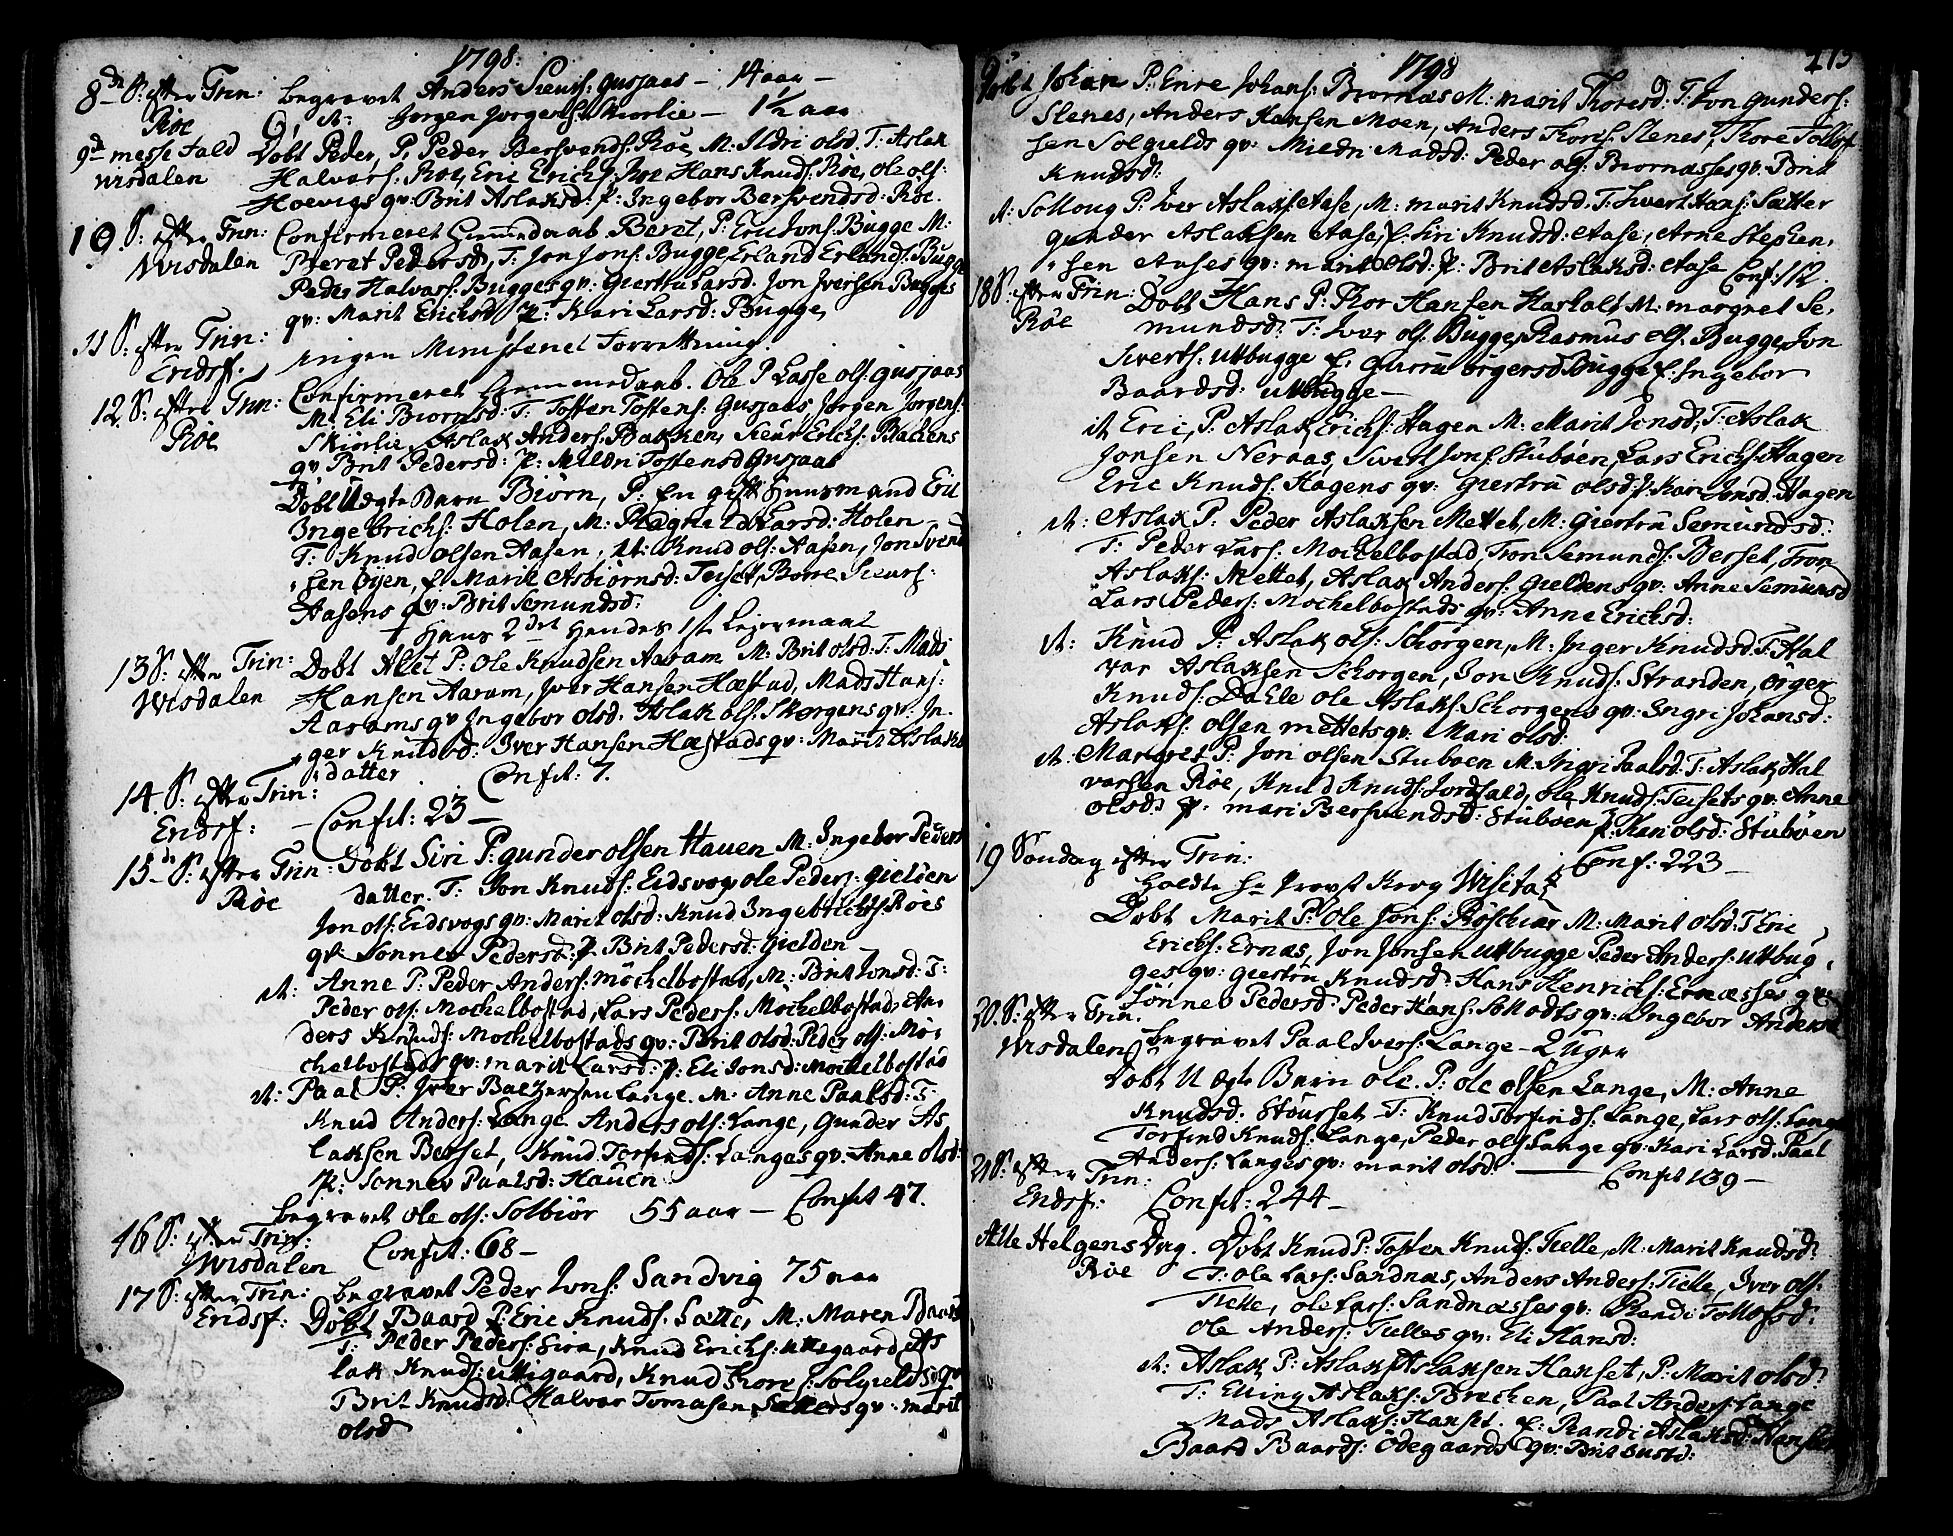 1798.
8de S: efter Trin: begravet Anders Sieurs: Gusjaas – 14 aar –
Röe it: Jorgen Jorgens: Skiorlie – 1½ aar
9de messe fald Döbt Peder, P. Peder Bersvends: Röe, M: Ildri olsd. T: Aslak
Wisdalen Halvors: Röe, Eric Erichs: Röe Hans Knuds: Röe, ole ols:
Hoevigs qv: Brit Aslaksd: p: Ingebor Bersvendsd: Röe.
10 S: efter Trin: Confirmeret Hiemedaab Beret, P: Eric Jons: Bugge M:
Wisdalen Beret Pedersd, T: Jon Jons: Bugge, Erland Erlands: Bugge
Peder Halvors: Bugges qv: Giertru Larsd. Jon Iversen Bugges
qv: Marit Ericksd p: Kari Larsd: Bugge,
11 S: efter Trin: ingen Ministeriel Forrettning.
Eridsf.
12 S: efter Trin: Confirmeret Hiemmedaab. Ole P Lasse ols: Gusjaas
Röe M: Eli Biornsd: T: Tosten Tostens: Gusjaas, Jorgen Jorgens:
Skiorlie, Aslak Anders: Bakken, Sieur Erichs: Bakkens
qv Brit Pedersd: p: Mildri Tostensd Gusjaas
Döbt Uægte Barn Biörn, P: En gift Huusmand Eric
Ingebrichs: Holen, M: Magnild Larsd: Holen
T: Knud Olsen Aasen, it: Knud ols: Aasen, Jon Svend
sen Öyen, p: Marit Asbiörnsd: Teiset, Borre Sieurs:
Aasens qv: Brit Semundsd:
Hans 2det Hendes 1ste Lejermaal
13 S: efter Trin: Döbt Alet P: Ole Knudsen Aaram M: Brit olsd. T: Mads
Wisdalen Hansen Aaram, Iver Hansen Hæstad, Mads Hans:
Aarams qv Ingebor olsd. Aslak ols: Skorgens qv: In-
ger Knudsd: Iver Hansen Hæstads qv: Marit Aslaks
datter Confit: 7.
14 S: efter Trin:
Eridsf: – Confit: 23 –
15de S: efter Trin: Döbt Siri P: gunder olsen Hauen M: Ingebor Peders
Röe datter. T: Jon Knuds: Eidsvog ole Peders: Gielöen
Jon ols: Eidsvogs qv: Marit olsd: Knud Ingebrichs: Röes
qv: Sonnev Pedersd: p. Brit Pedersd: Gielden
it: Anne P: Peder Anders: Möchelbostad, M: Brit Jonsd: T:
Peder ols: Mochelbostad, Lars Peders: Mochelbostad, An-
ders Knuds: Mochelbostads qv: Brit olsd: Peder ols: Mö-
chelbostads qv: marit Larsd: p: Eli Jonsd: Mochelbostad
it: Paal P: Iver Balzersen Lange. M: Anne Paalsd: T:
Knud Anders: Lange Anders ols: Lange, Gunder As
laksen Berset, Knud Torfinds: Langes qv: Anne olsd:
p: Sonnev Paalsd: Hauen
begravet ole ols: Solbiör 55 aar – Confit 47.
16 S: efter Trin: Confit: 68 –
Wisdalen
17 S: efter Trin: begravet Peder Jons: Sandvig 75 aar
Eridsf: Döbt Baard P: Eric Knuds: Sætte, M: Maren Baards
T: Peder Peders: Sira, Knud Erichs: Uttegaard, As
lak Knuds: Uttigaard, Knud Thores: Solgields qv
Brit Knudsd: Halvor Tomasen Sætters qv: marit
olsd
1798
Döbt Johan P: Enre Johans: Biornæs M: marit Thoresd: T: Jon Gunders:
Slenes, Anders Hansen Moen, Anders Thors: Slenes, Thore Tollof
sen Solgields qv: Mildri Madsd: Peder ols: Biornæsses qv: Brit
Knudsd:
it: Solloug P: Iver Aslaks: Aase, M: marit Knudsd. T: Sivert Hans: Sætter
gunder Aslaksen Aase, p: Siri Knudsd: Aase, Arne Stephen-
sen Aases qv: marit olsd: p: Brit Aslaksd: Aase Conf: 112
18 S: efter Trin: Döbt Hans P: Thor Hansen Haskalt M: margret Se-
Röe mundsd: T: Iver ols: Bugge, Rasmus ols: Bugge, Jon
Siverts: Utbugge p: Gurru örgersd Bugge p: Ingebor
Baardsd: Utbugge –
it Eric, P: Aslak Erichs: Hagen M: Marit Jonsd, T: Aslak
Jonsen Neraas, Sivert Jons: Stuböen, Lars Erichs: Hagen
Eric Knuds: Hagens qv: giertru olsd: p: Kari Jonsd: Hagen
it: Aslak P: Peder Aslaksen Mettet, M: Giertru Semundsd:
T: Peder Lars: Mochelbostad, Tron Semunds: Berset, Tron
Aslaks: Mettet, Aslak Anders: Gieldens qv: Anne Semunsd
Lars Peders: Mochelbostads qv: Anne Ericksd:
it: Knud P: Aslak ols: Schorgen, M: Inger Knudsd. T: Hal
vor Aslaksen Schorgen, Jon Knuds: Stranden, örger
Knuds: Dahle ole Aslaks: Schorgens qv: Ingri Johansd:
Aslaks: olsen mettets qv: Mari olsd:
it: Margret P: Jon olsen Stuboen M: Ingri Paalsd: T: Aslak Hal
vorsen Röe, Knud Knuds: Jordfald, ole Knuds: Teisets qv: Anne
olsd: p: mari Bersvendsd: Stuboen p: Kari olsd: Stuböen
Conf: 223 –
19 Söndag efter Trin:
holdte Hr Provst Krog Visitaz
Döbt Marit P: Ole Jons: Röschiær M: Marit olsd: T Eric
Erichs: Ernæs, Jon Jonsen Utbugge Peder Anders: Utbug-
ges qv: giertru Knudsd: Hans Henrichs: Ernæsses qv:
Sönnev Pedersd: Peder Hans: Soltadts qv: Ingebor Andersd
20 S: efter Trin.
Wisdalen begravet Paal Ivers: Lange – 2 Uger
Döbt U Ægte Barn ole. P: ole olsen Lange, M: Anne
Knudsd. Stöurset T: Knud Torfinds: Lange, Lars ols: Lange
Torfind Knuds: Lange, Peder ols: Lange qv: Kari Larsd. Paal
Anders: Langes qv: marit olsd: — Confit 139 –
21 S: efter Trin:
Eridsf: Confit: 244 –
Alle Helgens Dag. Döbt Knud P: Tosten Knuds: Tielle, M: Marit Knudsd:
Röe T: ole Lars: Sandnæs, Anders Anders: Tielle, Iver ols:
Tielle, ole Lars: Sandnæsses qv: Randi Tollofsd:
Ole Anders: Tielles qv: Eli Hansd:
it: Aslak P: Aslak Aslaksen Hanset, P: Marit olsd:
T: Elling Aslaks: Brechen, Paal Anders: Lange
Mads Aslaks: Hanset. p: Randi Aslaksd: Hanset
Baard Baards: Ödegaards qv: Brit